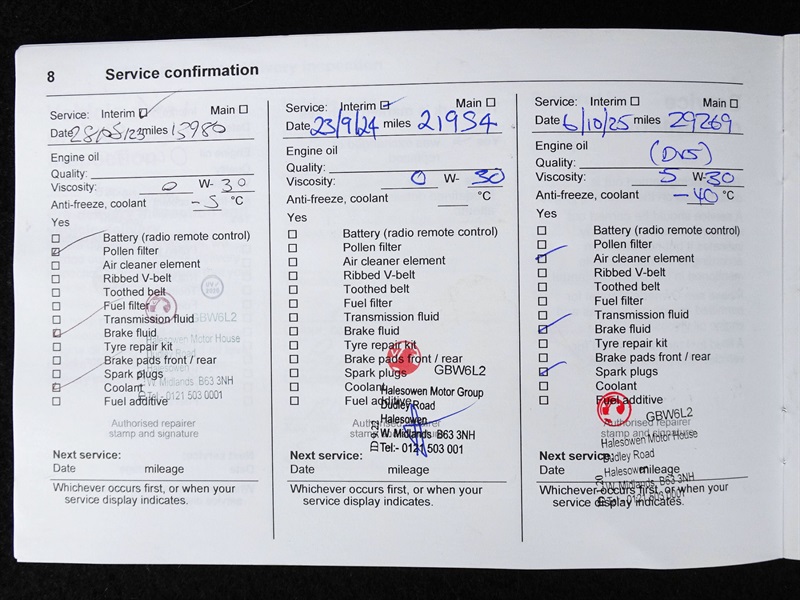 8 Service confirmation
Service: Interim Main
Date 28/05/23 miles 15980
Engine oil
Quality:
Viscosity: 0 W- 30
Anti-freeze, coolant -5 °C
Yes
Battery (radio remote control)
Pollen filter
Air cleaner element
Ribbed V-belt
Toothed belt
Fuel filter
Transmission fluid
Brake fluid
Tyre repair kit
Brake pads front / rear
Spark plugs
Coolant
Fuel additive
GBW6L2
Halesowen Motor House
Road
Halesowen
W. Midlands. B63 3NH
Tel:- 0121 503 0001
Authorised repairer
stamp and signature
Next service:
Date mileage
Whichever occurs first, or when your
service display indicates.
Service: Interim Main
Date 23/9/24 miles 21954
Engine oil
Quality:
Viscosity: 0 W- 30
Anti-freeze, coolant °C
Yes
Battery (radio remote control)
Pollen filter
Air cleaner element
Ribbed V-belt
Toothed belt
Fuel filter
Transmission fluid
Brake fluid
Tyre repair kit
Brake pads front / rear
Spark plugs
Coolant
Fuel additive
GBW6L2
Halesowen Motor Group
Dudley Road
Halesowen
W. Midlands B63 3NH
Tel:- 0121 503 001
Authorised repairer
stamp and signature
Next service:
Date mileage
Whichever occurs first, or when your
service display indicates.
Service: Interim Main
Date 6/10/25 miles 29269
Engine oil
Quality:
Viscosity: 5 W- 30
Anti-freeze, coolant -40 °C
Yes
Battery (radio remote control)
Pollen filter
Air cleaner element
Ribbed V-belt
Toothed belt
Fuel filter
Transmission fluid
Brake fluid
Tyre repair kit
Brake pads front / rear
Spark plugs
Coolant
Fuel additive
GBW6L2
Halesowen Motor House
Dudley Road
Halesowen
W. Midlands, B63 3NH
Tel:- 0121 503 0001
Authorised repairer
stamp and signature
Next service:
Date mileage
Whichever occurs first, or when your
service display indicates.